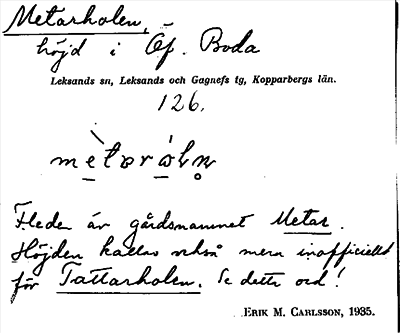 Metarholen,
höjd i Öf. Boda
Leksands sn, Leksands och Gagnefs tg, Kopparbergs län.
126.
F-leden är gårdsnamnet Metar.
Höjden kallas också mera inofficiellt
för Tattarholen. Se detta ord!
ERIK M. CARLSSON, 1935.